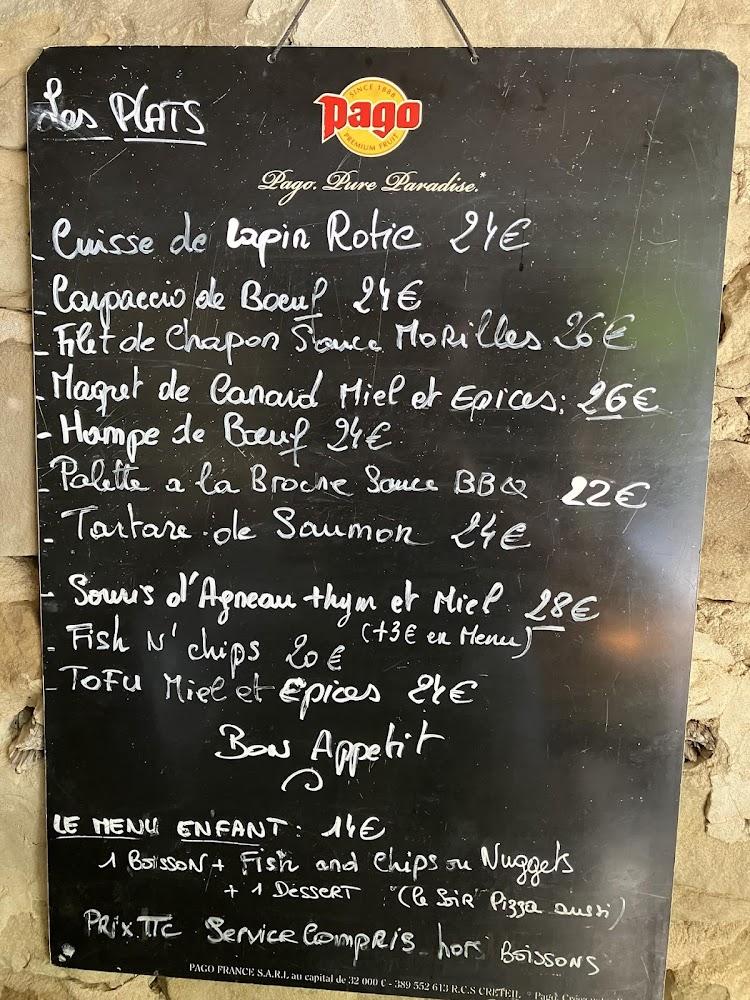 Les PLATS
SINCE 1888
Pago
PREMIUM FRUIT
Pago. Pure Paradise.*
- Cuisse de Lapin Rotie 24€
- Carpaccio de Boeuf 24€
- Filet de Chapon Sauce MoRilles 26€
- Magret de Canard Miel et Epices: 26€
- Hampe de Boeuf 24€
- Palette a la Broche Sauce BBQ 22€
- Tartare de Saumon 24€
- Souris d'Agneau thym et Miel 28€
(+3€ en Menu)
- Fish N' chips 20€
- ToFu Miel et Epices 24€
Bon Appetit
LE MENU ENFANT: 14€
1 BoissoN + Fish and Chips ou Nuggets
+ 1 DESSERT "(le SoiR" Pizza aussi)
PRix TTC Service Compris hors BoissoNS
PAGO FRANCE S.A.R.L au capital de 32 000 € - 389 552 613 R.C.S CRETEIL * Pago.